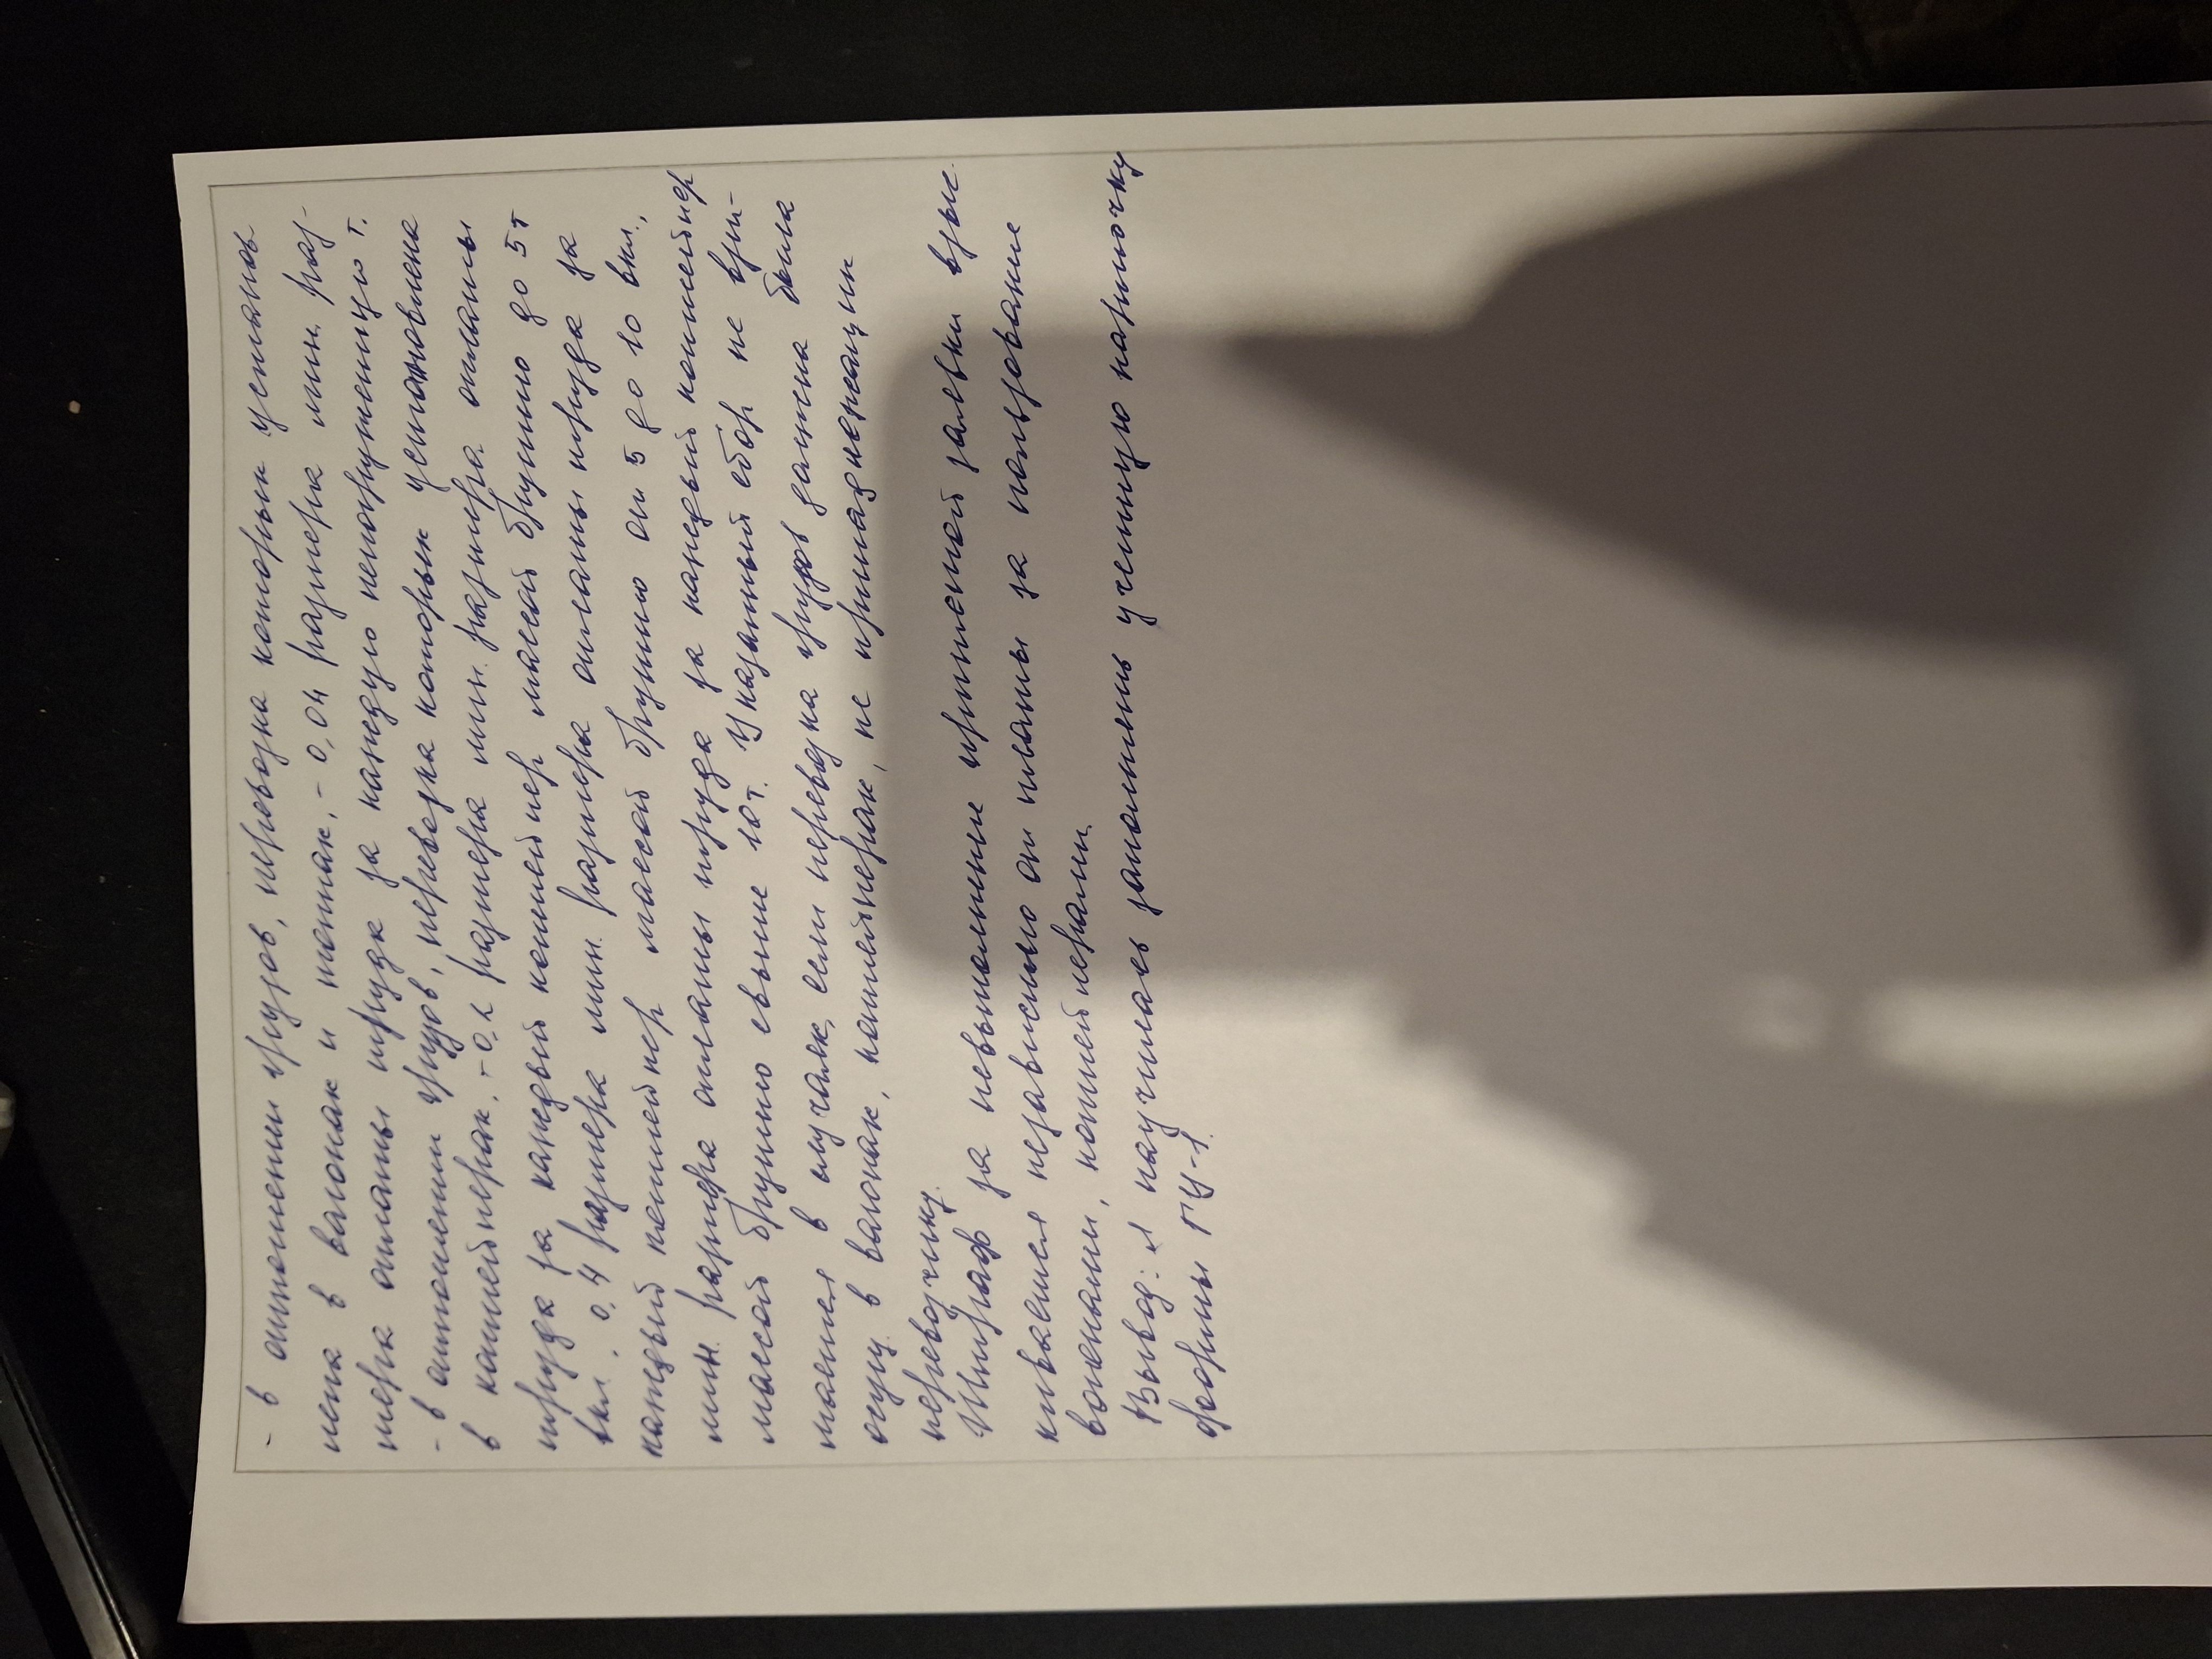 - в отношении грузов, перевозка которых установ
лена в вагонах и тоннах, - 0,04 размера мин. раз-
мера оплаты труда за каждую непогруженную т.
- в отношении грузов, перевозка которых установлена
в контейнерах, - 0,2 размера мин. размера оплаты
труда за каждый контейнер массой брутто до 5т
вкл. 0,4 размера мин. размера оплаты труда за
каждый контейнер массой брутто от 5 до 10 вкл.,
мин. размера оплаты труда за каждый контейнер
массой брутто свыше 10т. Указанный сбор не взи-
мается в случаях, если перевозка груза должна была
осущ. в вагонах, контейнерах, не принадлежащих
перевозчику.
Штраф за невыполнение принятой заявки взыс
кивается независимо от платы за пользование
вагонами, контейнерами.
Вывод: я научилась заполнять учетную карточку
формы ГУ-1.